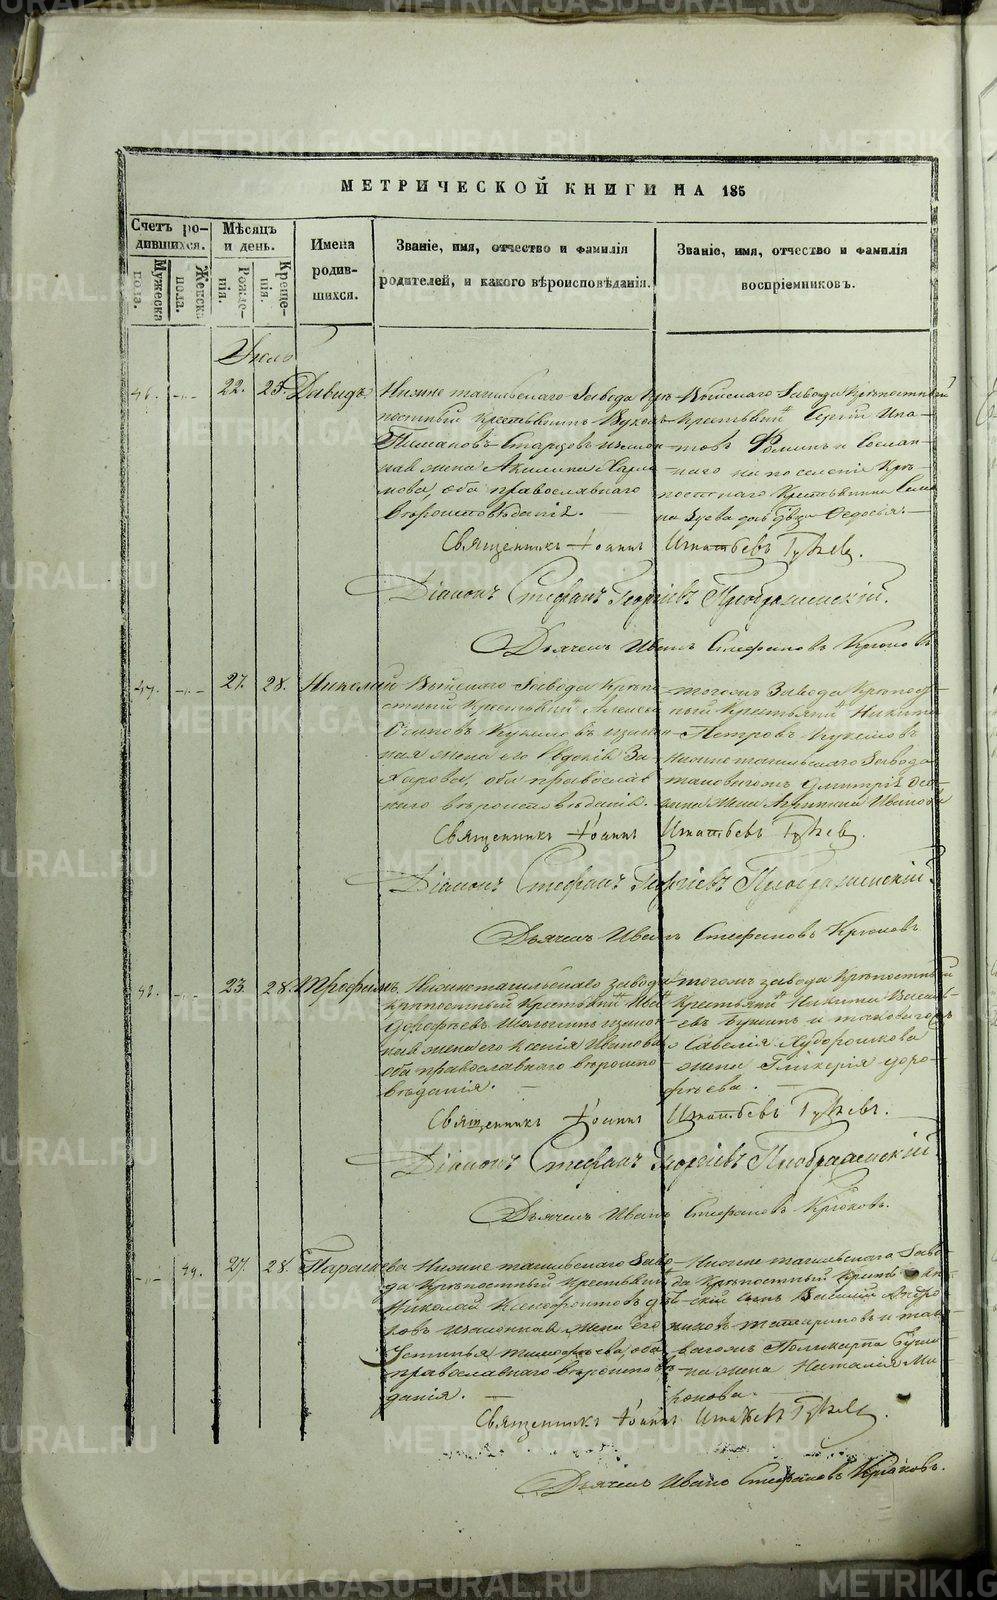 МЕТРИЧЕСКОЙ КНИГИ НА 185
Счетъ ро-
дившихся.
Мужеска
пола.
Женска
пола.
Мѣсяцъ
и день.
Рожде-
нія.
Креще-
нія.
Имена
родив-
шихся.
Званіе, имя, отчество и фамилія
родителей, и какого вѣроисповѣданія.
Званіе, имя, отчество и фамилія
воспріемниковъ.
Іюль
46. 22. 25. Давидъ
Нижне тагильскаго Завода Крѣ-
постный крестьянинъ
Старцовъ и закон-
ная жена Акилина Харла-
мова, оба православнаго
вѣроисповѣданія.
Выйскаго Завода Крѣпостный
крестьянинъ Сергій Ипа-
товъ Фоминъ и Сослан-
наго на поселеніе Крѣ-
постнаго Крестьянина
Зуева дочь дѣвица Федосья.
Священникъ Іоаннъ Игнатьевъ
Діаконъ Стефанъ Георгіевъ Преображенскій.
Дьячекъ Иванъ Стефановъ Крюковъ
47. 27. 28. Николай
Выйскаго Завода Крѣпо-
стный Крестьянинъ Алексѣй
Осиповъ и закон-
ная жена его Евдокія За-
харова, оба православ-
наго вѣроисповѣданія.
тогожъ Завода Крѣпост-
ный Крестьянинъ Никита
Петровъ
Нижне тагильскаго Завода
таковагожъ Дмитрія
жена Агрипина Иванова
Священникъ Іоаннъ Игнатьевъ
Діаконъ Стефанъ Георгіевъ Преображенскій.
Дьячекъ Иванъ Стефановъ Крюковъ
48. 23. 28. Трофимъ
Нижнетагильскаго завода
крѣпостный Крестьянинъ
Дорофѣевъ и закон-
ная жена его Ксенія Иванова
оба православнаго вѣроиспо-
вѣданія.
тогожъ завода Крѣпостный
крестьянинъ Никита Василь-
евъ и таковагожъ
Савелія Худорошкова
жена Гликерія Доро-
фѣева.
Священникъ Іоаннъ Игнатьевъ
Діаконъ Стефанъ Георгіевъ Преображенскій
Дьячекъ Иванъ Стефановъ Крюковъ.
49. 27. 28. Параскева
Нижне тагильскаго Заво-
да Крѣпостный Крестьянинъ
Николай Ксенофонтовъ
законная жена его
Устинья Тимофѣева, оба
православнаго вѣроисповѣ-
данія.
Нижне тагильскаго Заво-
да Крѣпостный Крестьян-
скій сынъ Василій Андро-
никовъ Татариновъ и так-
вагожъ Поликарпа
жена Наталія Ми-
ронова.
Священникъ Іоаннъ Игнатьевъ
Дьячекъ Иванъ Стефановъ Крюковъ.
METRIKI.GASO-URAL.RU